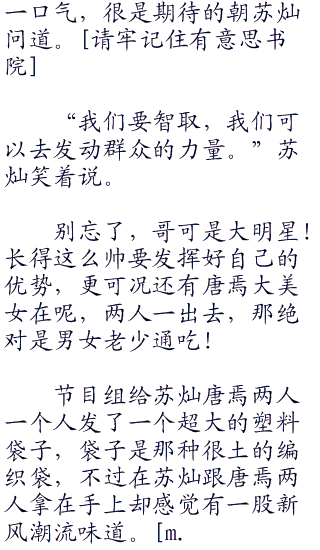 一口气，很是期待的朝苏灿
问道。[请牢记住有意思书
院]
“我们要智取，我们可
以去发动群众的力量。”苏
灿笑着说。
别忘了，哥可是大明星！
长得这么帅要发挥好自己的
优势，更可况还有唐焉大美
女在呢，两人一出去，那绝
对是男女老少通吃！
节目组给苏灿唐焉两人
一个人发了一个超大的塑料
袋子，袋子是那种很土的编
织袋，不过在苏灿跟唐焉两
人拿在手上却感觉有一股新
风潮流味道。[m.